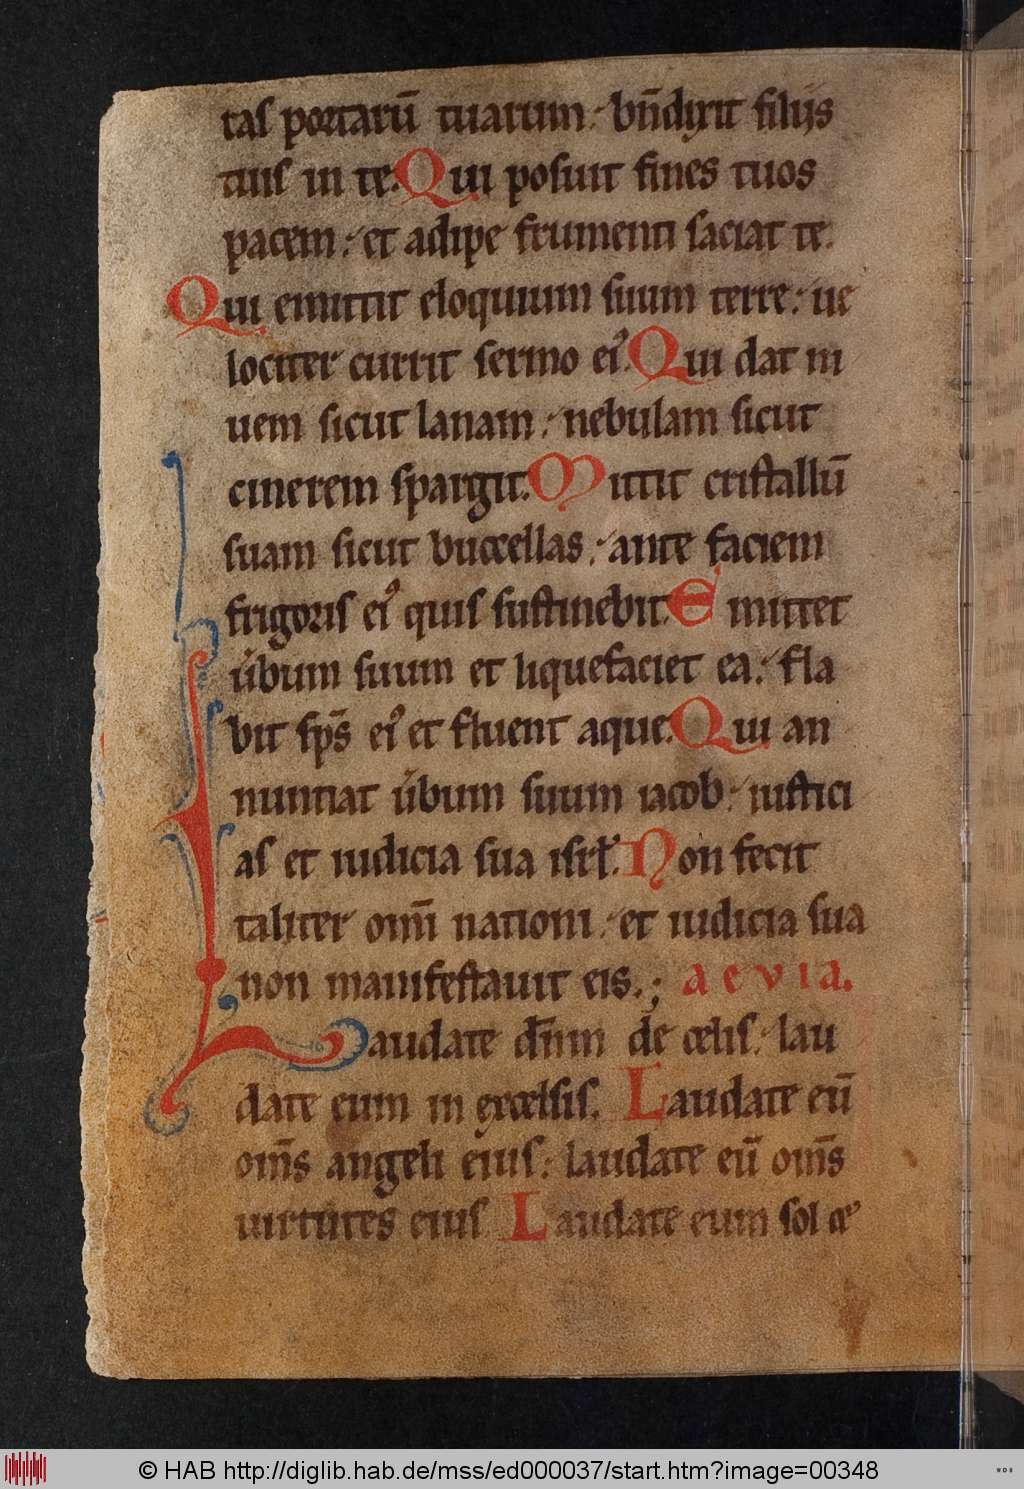 tas portarū tuarum. bn̄dixit filijs
tuis in te. Qui posuit fines tuos
pacem: et adipe frumenti saciat te.
Qui emittit eloquium suum terre: ue
lociter currit sermo ei᾽. Qui dat ni
uem sicut lanam: nebulam sicut
cinerem spargit. Mittit cristallū
suam sicut buccellas: ante faciem
frigoris ei᾽ quis sustinebit. Emittet
u̓bum suum et liquefaciet ea: fla
bit sps̄ ei᾽ et fluent aque. Qui an
nuntiat u̓bum suum iacob: iustici
as et iudicia sua isrł. Non fecit
taliter omī nationi: et iudicia sua
non manifestauit eis.; aevia.
Laudate dn̄m de celis: lau
date eum in excelsis. Laudate eū
omn̄s angeli eius: laudate eū omn̄s
uirtutes eius Laudate eum sol et
© HAB http://diglib.hab.de/mss/ed000037/start.htm?image=00348